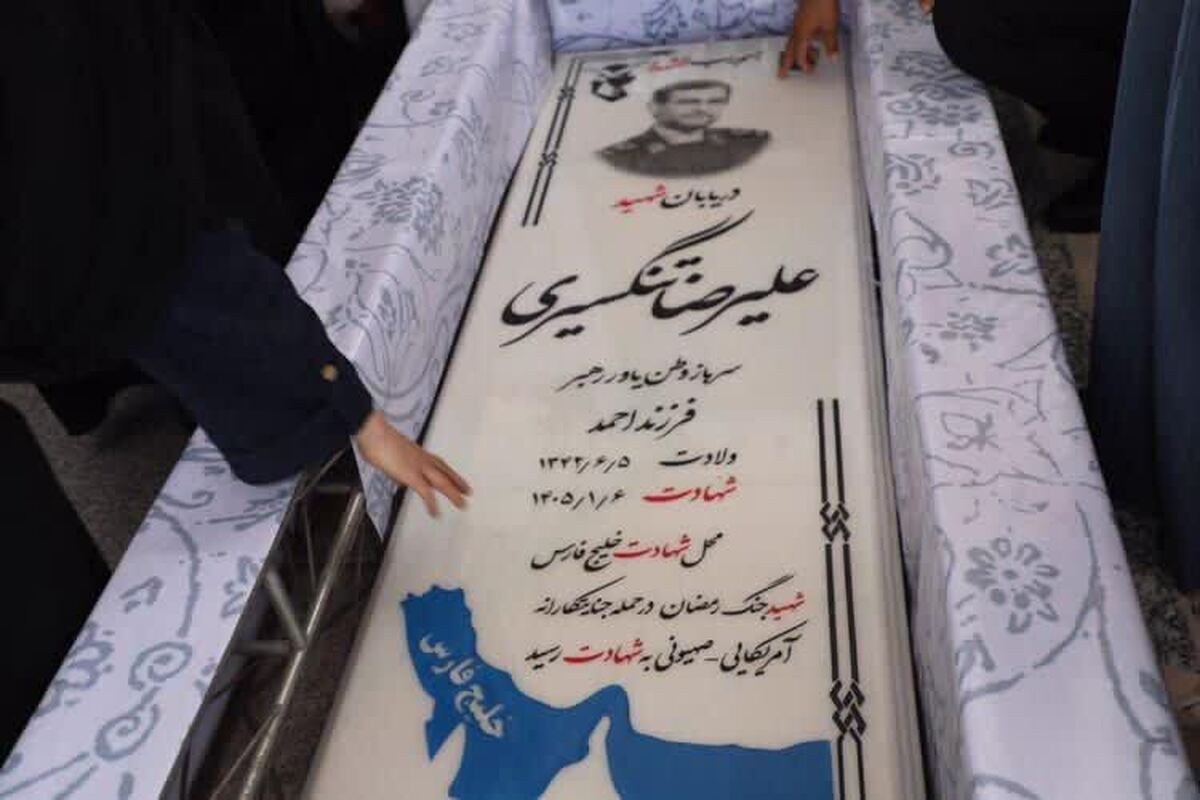 دریابان شهید
علیرضا تنگسیری
سرباز وطن یاور رهبر
فرزند احمد
ولادت ۱۳۴۲/۶/۵
شهادت ۱۴۰۵/۱/۶
محل شهادت خلیج فارس
شهید جنگ رمضان در حمله جنایتکارانه
آمریکایی - صهیونی به شهادت رسید
خلیج فارس